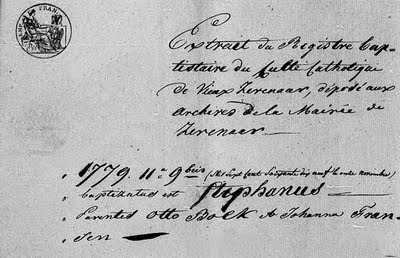 Extrait du Registre Bap-
tistaire du Culte Catholique
de Vieux Zevenaar, déposé aux
archives de la Mairie de
Zevenaer
1779. 11a 9bris (Mil Sept Cent Soixante dix neuf le onze novembre)
baptizatus est Stephanus
Parentes Otto Bolk & Johanna Fran-
sen